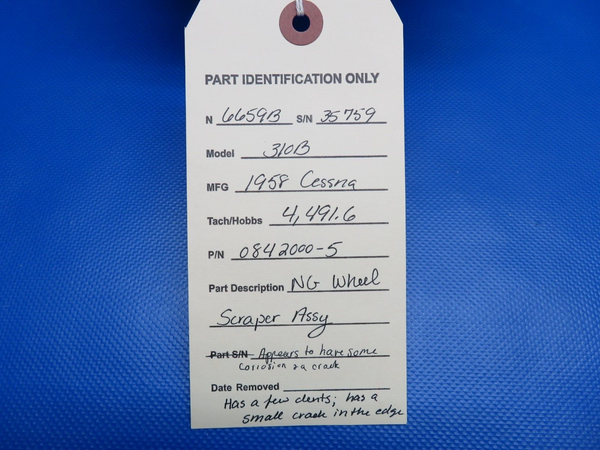 PART IDENTIFICATION ONLY
N 6659B S/N 35759
Model 310B
MFG 1958 Cessna
Tach/Hobbs 4,491.6
P/N 0842000-5
Part Description NG Wheel
Scraper Assy
Part S/N Appears to have some
corrosion & a crack
Date Removed
Has a few dents; has a
small crack in the edge